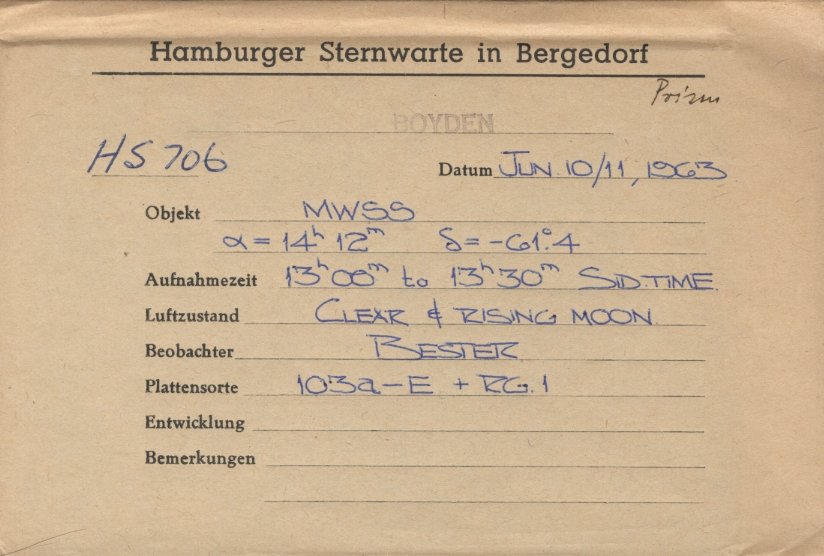 Hamburger Sternwarte in Bergedorf
Prism
BOYDEN
HS 706
Datum JUN. 10/11, 1963
Objekt MWSS
α = 14ʰ 12ᵐ δ = -61°.4
Aufnahmezeit 13ʰ00ᵐ to 13ʰ30ᵐ SID. TIME.
Luftzustand CLEAR & RISING MOON.
Beobachter BESTER
Plattensorte 103a-E + RG.1
Entwicklung
Bemerkungen